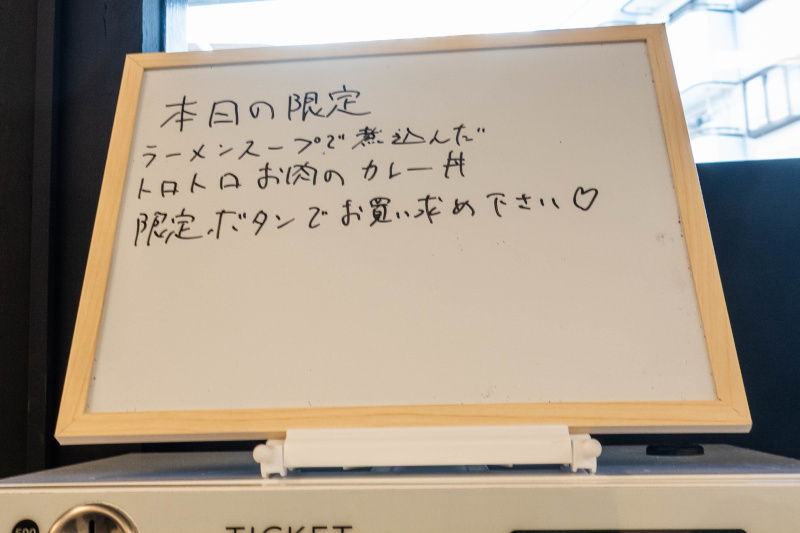 本日の限定
ラーメンスープで煮込んだ
トロトロお肉のカレー丼
限定ボタンでお買い求め下さい♡
500
TICKET